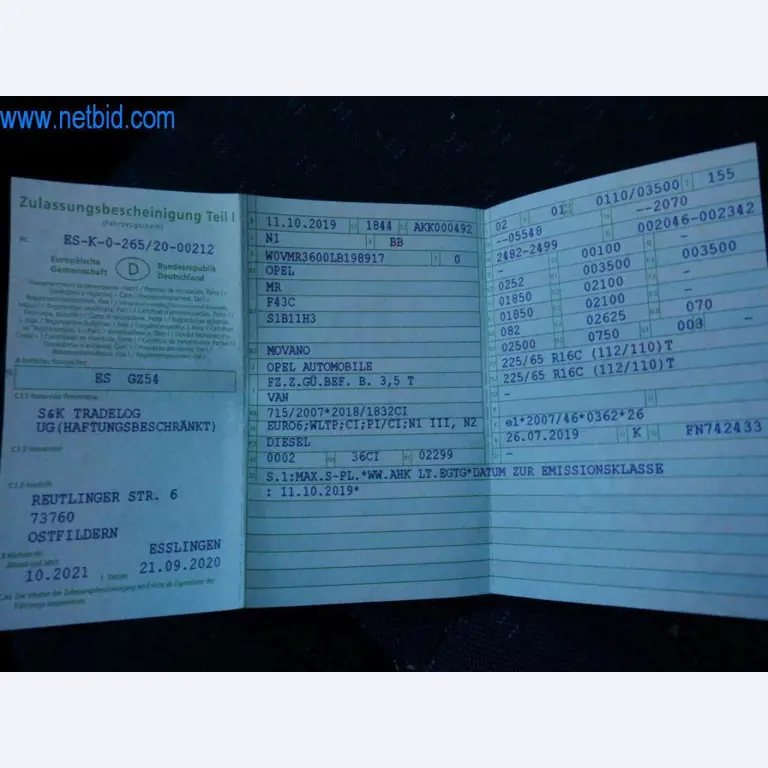 www.netbid.com
Zulassungsbescheinigung Teil I
(Fahrzeugschein)
Nr. ES-K-0-265/20-00212
Europäische Gemeinschaft
D
Bundesrepublik Deutschland
ES GZ54
C.1.1
S&K TRADELOG
UG(HAFTUNGSBESCHRÄNKT)
C.1.2
C.1.3 Anschrift
REUTLINGER STR. 6
73760
OSTFILDERN
ESSLINGEN
10.2021
21.09.2020
11.10.2019 1844 AKK000492
N1 BB
W0VMR3600LB198917 0
OPEL
MR
F43C
S1B11H3
MOVANO
OPEL AUTOMOBILE
FZ.Z.GÜ.BEF. B. 3,5 T
VAN
715/2007*2018/1832CI
EURO6;WLTP;CI;PI/CI;N1 III, N2
DIESEL
0002 36CI 02299
S.1:MAX.S-PL.*WW.AHK LT.EGTG*DATUM ZUR EMISSIONSKLASSE
: 11.10.2019*
02 01 0110/03500 155
--05548 --2070
2482-2499 002046-002342
- 00100 -
0252 003500 003500
01850 02100 -
01850 02100 -
082 02625 070
02500 0750 003 -
225/65 R16C (112/110)T
225/65 R16C (112/110)T
-
-
e1*2007/46*0362*26
26.07.2019 K FN742433
-